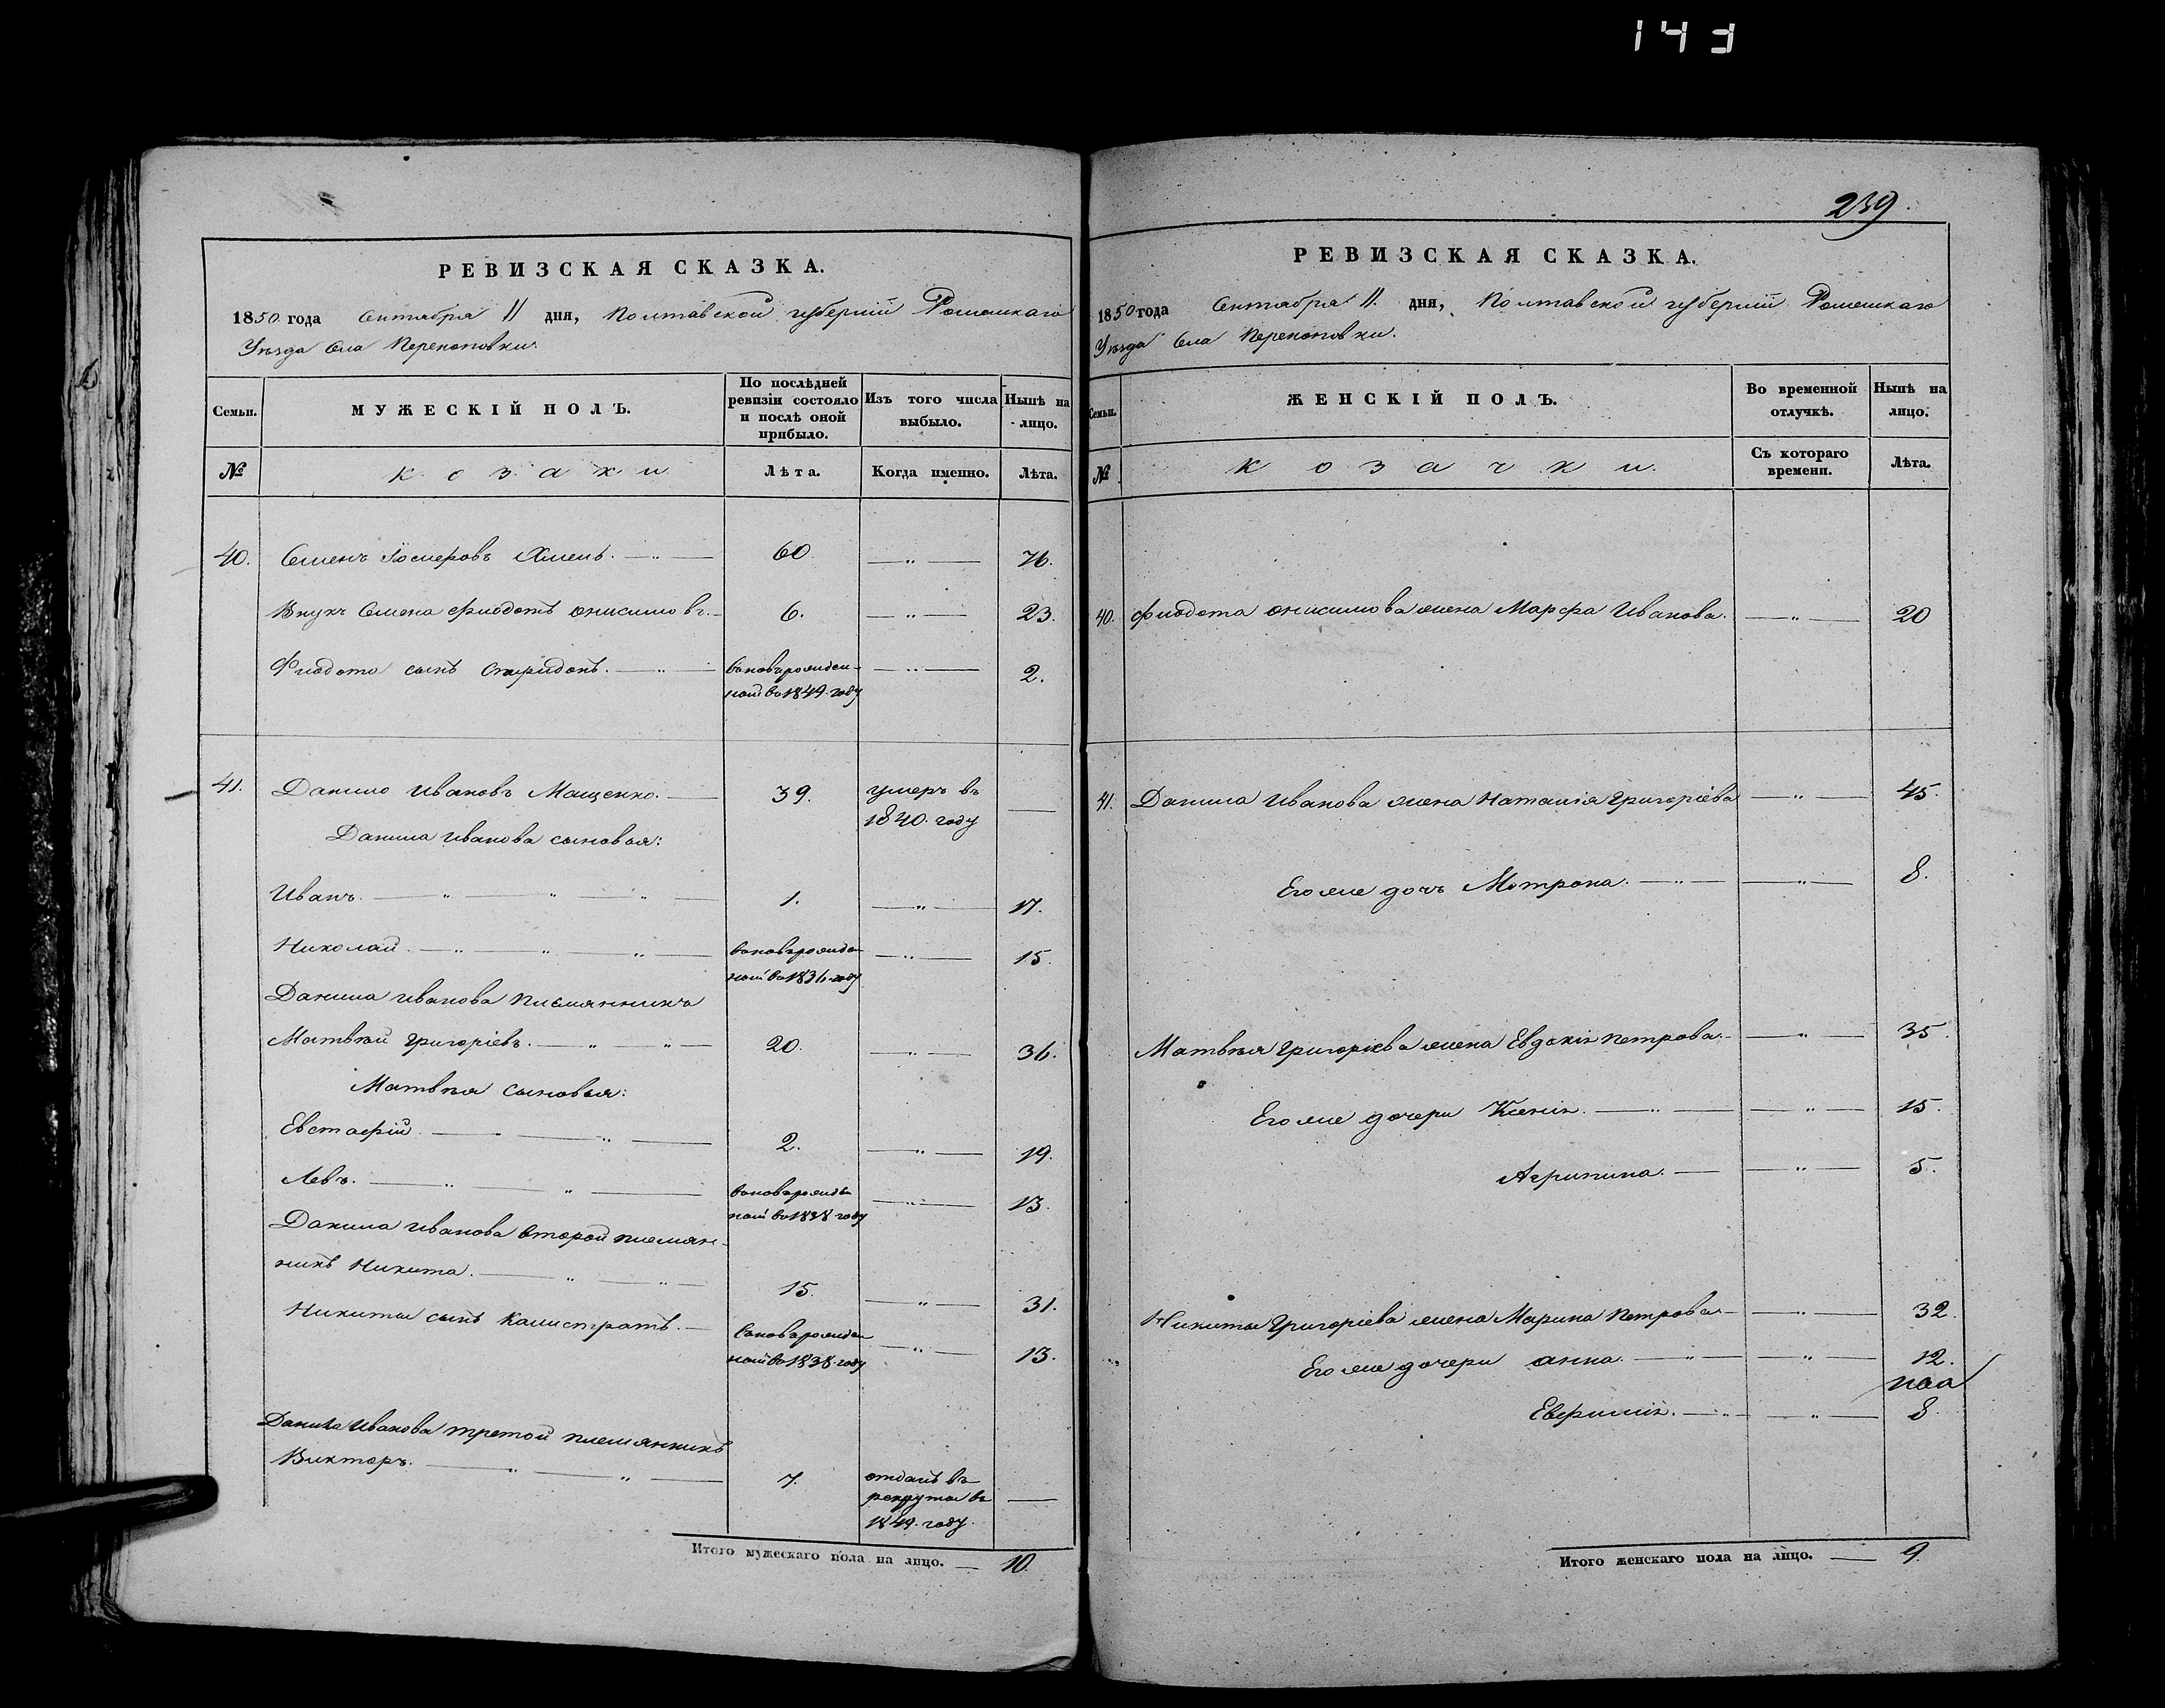 143
239.
РЕВИЗСКАЯ СКАЗКА.
1850 года Сентября 11 дня, Полтавской губерніи Роменскаго
Уѣзда Села Перекоповки.
Семьи.
МУЖЕСКІЙ ПОЛЪ.
По послѣдней ревизіи состояло и послѣ оной прибыло.
Изъ того числа выбыло.
Нынѣ на лицо.
№
Козаки
Лѣта.
Когда именно.
Лѣта.
40. Семенъ Хмель. 60. 76.
Внукъ Семена Фиодотъ Онисимовъ. 6. 23.
Фиодота сынъ Спиридонъ. вновьрожден-
ной во 1849 году 2.
41. Данило Ивановъ Мащенко. 39. умеръ въ
1840. году
Данила Иванова сыновья:
Иванъ. 1. 17.
Николай. вновьрожден
ной во 1836 году 15.
Данила Иванова племянникъ
Матвѣй Григоріевъ. 20. 36.
Матвѣя сыновья:
Евстафій. 2. 19.
Левъ. вновьрожден
ной во 1838 году 13.
Данила Иванова второй племян-
никъ Никита. 15. 31.
Никиты сынъ Калистратъ. вновьрожден
ной во 1838 году 13.
Данила Иванова третой племянникъ
Викторъ. 7. отданъ въ
рекруты въ
1849. году
Итого мужескаго пола на лицо. 10.
РЕВИЗСКАЯ СКАЗКА.
1850 года Сентября 11. дня, Полтавской губерніи Роменскаго
Уѣзда Села Перекоповки.
Семьи.
ЖЕНСКІЙ ПОЛЪ.
Во временной отлучкѣ.
Нынѣ на лицо.
№
Козачки.
Съ котораго времени.
Лѣта.
40. Фиодота Онисимова жена Марфа Иванова. 20
41. Данила Иванова жена Наталія Григоріева 45.
Его же дочь Мотрона. 8.
Матвѣя Григоріева жена Евдокія Петрова. 35.
Его же дочери Ксенія. 15.
Агрипина. 5.
Никиты Григоріева жена Марина Петрова 32.
Его же дочери Анна. 12.
Евфимія. 8.
Итого женскаго пола на лицо. 9.